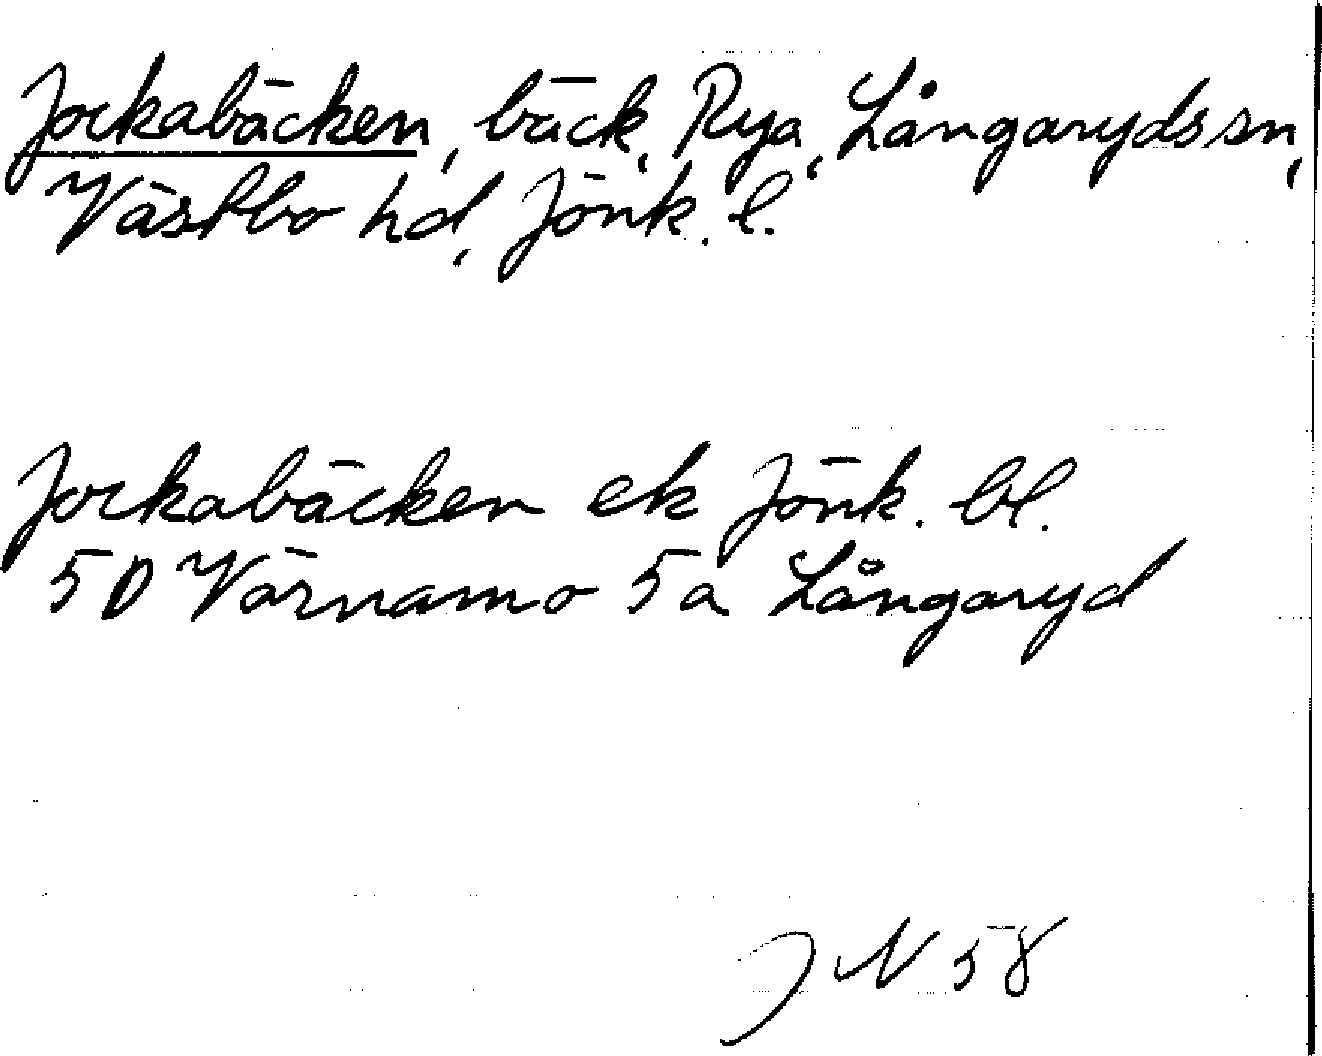 Jockabäcken, bäck, Rya, Långarydssn,
Västbo hd, Jönk. l.
Jockabäcken ek Jönk. bl.
5D Värnamo 5a Långaryd
JN 58